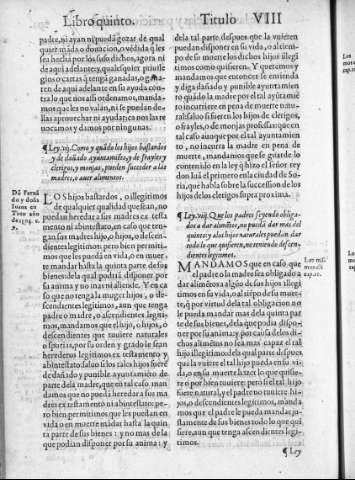 Libro quinto.
Titulo VIII
padre, ni ayan ni pueda gozar de qual
quier mãda o donacion, o vẽdida q̃ les
sea hecha por los suso dichos, agora ni
de aqui adelante: y qualesquier priuile
gios o cartas q̃ tengã ganadas, o gana-
ren de aqui adelante en su ayuda con-
tra lo que nos assi ordenamos, manda-
mos que les no valan, ni se puedan de-
llas aprouechar ni ayudar, ca nos las re
uocamos y damos por ningunas.
¶ Ley.vij. Como y quãdo los hijos bastardos
y de dañado ayuntamiẽto, y de frayles y
clerigos, y monjas, pueden suceder a las
madres, o auer alimentos.
LOS hijos bastardos, o illegitimos
de qualquier qualidad que sean, no
puedan heredar a sus madres ex testa
mento ni abintestato, en caso que ten-
gan sus madres hijo, o hijos, o descen-
dientes legitimos: pero bien permiti-
mos que les pueda en vida, o en muer
te mandar hasta la quinta parte de sus
bienes dela qual podria disponer por
su anima y no mas ni allende. Y en ca
so que no tenga la muger hijos, o des-
cendientes legitimos, aun que tenga
padre o madre, o ascendientes legiti-
mos, mandamos que el hijo, o hijos, o
descendientes que tuuiere naturales
o spurios, por su orden y grado le sean
herederos legitimos ex testamento y
abintestato: saluo si los tales hijos fuerẽ
de dañado y punible ayuntamiẽto de
parte de la madre, que en tal caso man
damos que no pueda heredar a sus ma
dres ex testamento ni abintestato: pe-
ro bien permitimos que les puedan en
vida o en muerte mãdar hasta la quin
ta parte de sus bienes: y no mas de la
que podian disponer por su anima: y
dela tal parte despues que la vuieren
puedan disponer en su vida, o al tiem-
po de su muerte los dichos hijos illegi
timos como quisieren. Y queremos y
mandamos que entonces se entienda
y diga dañado y punible ayuntamiẽto
quãdo la madre por el tal ayũtamiẽ
to incurriere en pena de muerte natu-
ral: saluo si fueren los hijos de clerigos,
o frayles, o de monjas professas: que en
tal caso aunque por el tal ayuntamien
to, no incurra la madre en pena de
muerte, mandamos que se guarde lo
contenido en la ley q̃ hizo el señor rey
don Iuã el primero en la ciudad de So-
ria, que habla sobre la succession de los
hijos delos clerigos supra proximos.
¶ Ley.viij. Que los padres seyendo obliga-
dos a dar alimẽtos, no puedã dar mas del
quinto: y a los hijos naturales puedan dar
todo lo que quisieren, no teniendo descen-
dientes legitimos.
MANDAMOS que en caso, que
el padre o la madre sea obligado a
dar alimẽtos a algũo de sus hijos illegi
timos en su vida, o al tiẽpo de su muer
te, q̃ por virtud de la tal obligacion no
le pueda mandar mas dela quinta par
te de sus bienes, dela que podia dispo-
ner por su anima: y por causa de los di-
chos alimẽtos no sea mas capaz el tal
hijo illegitimo: dela qual parte despues
que la vuiere el tal hijo pueda en su vi-
da, o en su muerte hazer lo que quisie-
re o por bien touiere: pero si el tal hijo
fuere natural, y el padre no tuuiere hi-
jos, o descendientes legitimos, mãda-
mos que el padre le pueda mandar ju-
stamente de sus bienes todo lo que qui
siere, aun que tenga ascendientes legi-
timos.
¶ Ley